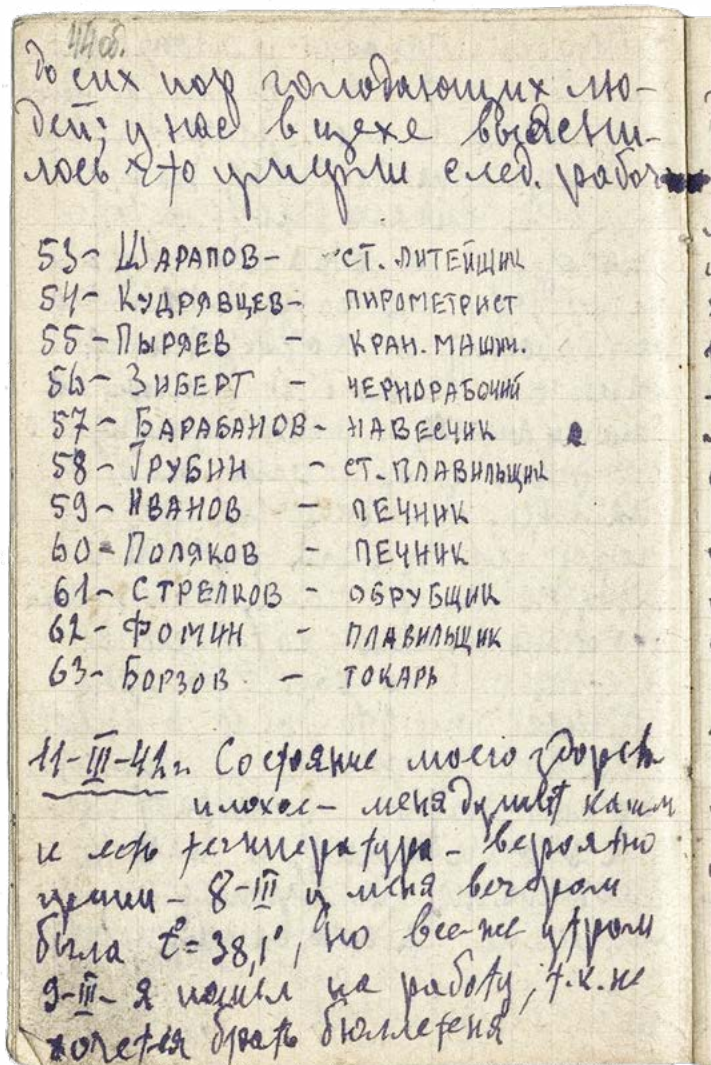 44об.
до сих пор голодающих лю-
дей; у нас в цехе выясни-
лось что умерли след. рабоч
53- Шарапов- ст. литейщик
54- Кудрявцев- пирометрист
55- Пыряев - кран. машин.
56- Зиберт - чернорабочий
57- Барабанов- навесчик
58- Грубин - ст. плавильщик
59- Иванов - печник
60- Поляков - печник
61- Стрелков - обрубщик
62- Фомин - плавильщик
63- Борзов - токарь
11-III-42г. Состояние моего здоровья
плохое- меня душит кашель
и есть температура- вероятно
грипп- 8-III у меня вечером
была t°=38,1°, но все-же утром
9-III- я пошел на работу, т.к. не
хочется брать бюллетеня